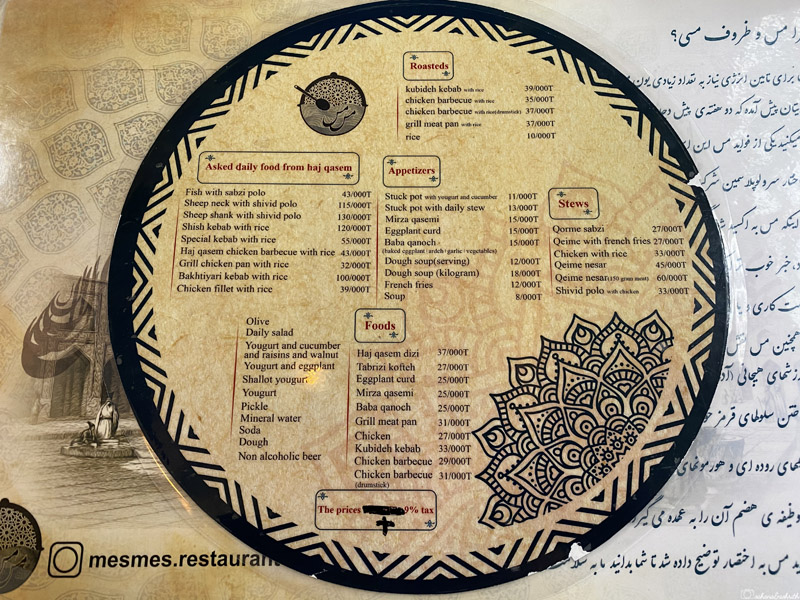 Roasteds
kubideh kebab with rice 39/000T
chicken barbecue with rice 35/000T
chicken barbecue with rice(drumstick) 37/000T
grill meat pan with rice 37/000T
rice 10/000T
Asked daily food from haj qasem
Fish with sabzi polo 43/000T
Sheep neck with shivid polo 115/000T
Sheep shank with shivid polo 130/000T
Shish kebab with rice 120/000T
Special kebab with rice 55/000T
Haj qasem chicken barbecue with rice 43/000T
Grill chicken pan with rice 32/000T
Bakhtiyari kebab with rice 100/000T
Chicken fillet with rice 39/000T
Appetizers
Stuck pot with yougurt and cucumber 11/000T
Stuck pot with daily stew 13/000T
Mirza qasemi 15/000T
Eggplant curd 15/000T
Baba qanoch 15/000T
(baked eggplant / ardeh / garlic / vegetables)
Dough soup(serving) 12/000T
Dough soup (kilogram) 18/000T
French fries 12/000T
Soup 8/000T
Stews
Qorme sabzi 27/000T
Qeime with french fries 27/000T
Chicken with rice 33/000T
Qeime nesar 45/000T
Qeime nesar(150 gram meat) 60/000T
Shivid polo with chicken 33/000T
Olive
Daily salad
Yougurt and cucumber
and raisins and walnut
Yougurt and eggplant
Shallot yougurt
Yougurt
Pickle
Mineral water
Soda
Dough
Non alcoholic beer
Foods
Haj qasem dizi 37/000T
Tabrizi kofteh 27/000T
Eggplant curd 25/000T
Mirza qasemi 25/000T
Baba qanoch 25/000T
Grill meat pan 31/000T
Chicken 27/000T
Kubideh kebab 33/000T
Chicken barbecue 29/000T
Chicken barbecue 31/000T
(drumstick)
The prices 9% tax
+
mesmes.restaurant
مس و ظروف مسی؟
برای تامین انرژی نیاز به تعداد زیادی یون
پیش آمده که دو هفته‌ی پیش
یکی از فواید مس این
خبر خوب
ست کاری و
همچنین مس
سلولهای قرمز
روده ای و هورمونهای
وظیفه ی هضم آن را به عهده می گیر
مس به اختصار توضیح داده شد تا شما بدانید ما به